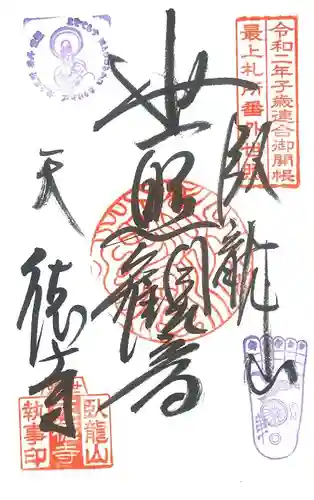 令和二年子歳連合御開帳
最上札所番外世照
臥龍山
世照観音
天徳寺
臥龍山
執事印